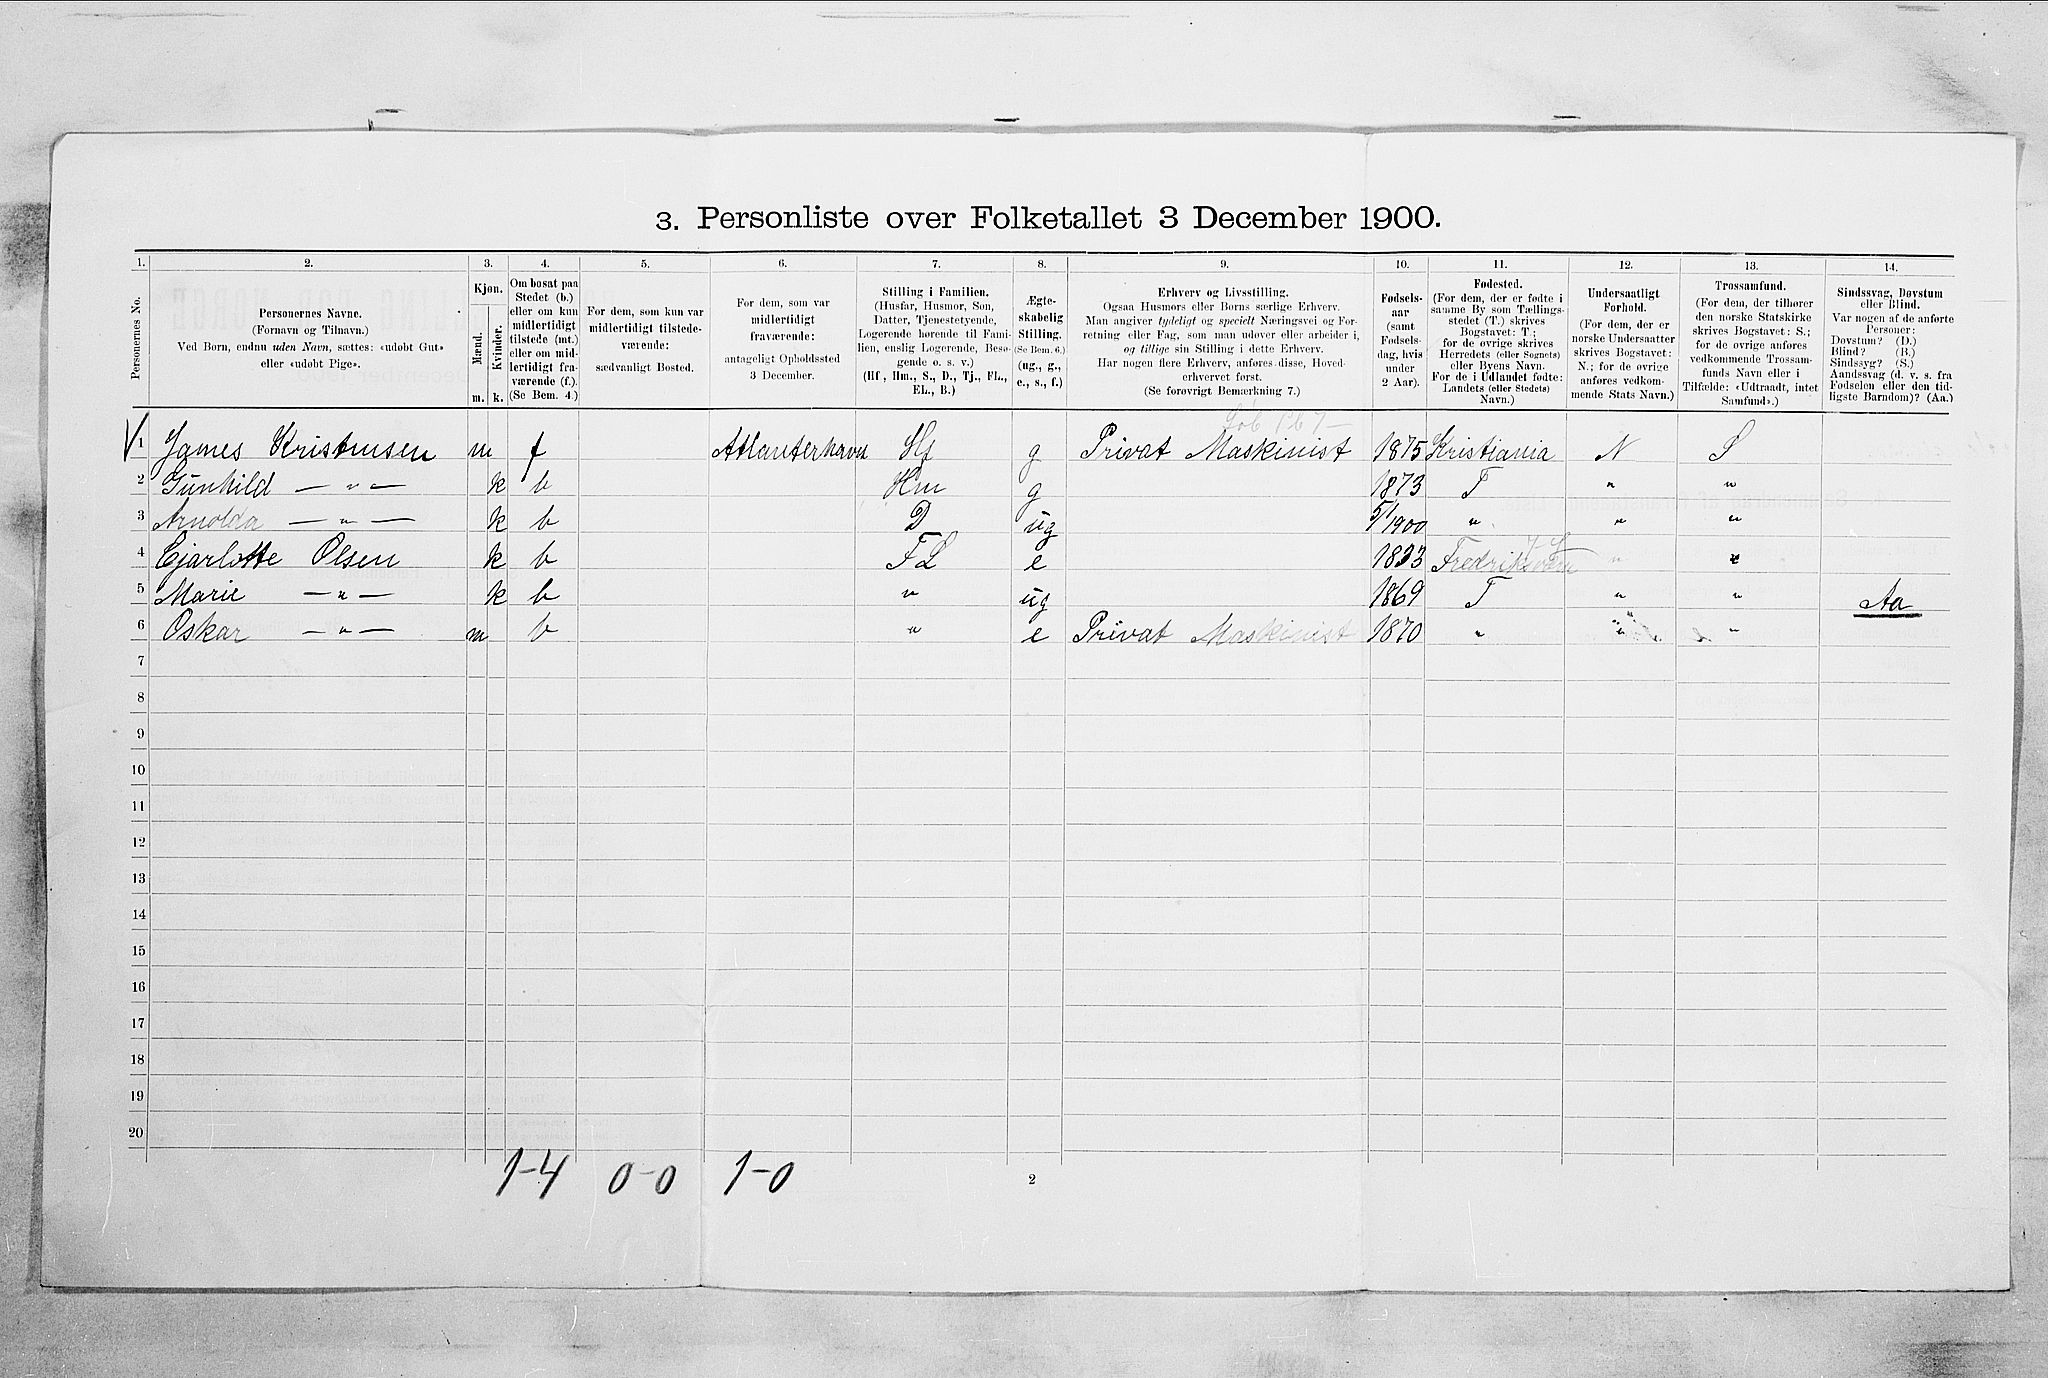 3. Personliste over Folketallet 3 December 1900.
1. 2. 3. 4. 5. 6. 7. 8. 9. 10. 11. 12. 13. 14.
Personernes No.
Personernes Navne.
(Fornavn og Tilnavn.)
Ved Børn, endnu uden Navn, sættes: «udøbt Gut»
eller «udøbt Pige».
Kjøn.
Mænd.
Kvinder.
m. k.
Om bosat paa
Stedet (b.)
eller om kun
midlertidigt
tilstede (mt.)
eller om mid-
lertidigt fra-
værende (f.).
(Se Bem. 4.)
For dem, som kun var
midlertidigt tilstede-
værende:
sædvanligt Bosted.
For dem, som var
midlertidigt
fraværende:
antageligt Opholdssted
3 December.
Stilling i Familien.
(Husfar, Husmor, Søn,
Datter, Tjenestetyende,
Logerende hørende til Fami-
lien, enslig Logerende, Besø-
gende o. s. v.)
(Hf., Hm., S., D., Tj., FL.,
EL., B.)
Ægte-
skabelig
Stilling.
(Se Bem. 6.)
(ug., g.,
e., s., f.)
Erhverv og Livsstilling.
Ogsaa Husmors eller Børns særlige Erhverv.
Man angiver tydeligt og specielt Næringsvei og For-
retning eller Fag, som man udøver eller arbeider i,
og tillige sin Stilling i dette Erhverv.
Har nogen flere Erhverv, anføres disse, Hoved-
erhvervet først.
(Se forøvrigt Bemærkning 7.)
Fødsels-
aar
(samt
Fødsels-
dag, hvis
under
2 Aar).
Fødested.
(For dem, der er fødte i
samme By som Tællings-
stedet (T.) skrives
Bogstavet: T;
for de øvrige skrives
Herredets (eller Sognets)
eller Byens Navn.
For de i Udlandet fødte:
Landets (eller Stedets)
Navn.)
Undersaatligt
Forhold.
(For dem, der er
norske Undersaatter
skrives Bogstavet:
N.; for de øvrige
anføres vedkom-
mende Stats Navn.)
Trossamfund.
(For dem, der tilhører
den norske Statskirke
skrives Bogstavet: S.;
for de øvrige anføres
vedkommende Trossam-
funds Navn eller i
Tilfælde: «Udtraadt, intet
Samfund».)
Sindssvag, Døvstum
eller Blind.
Var nogen af de anførte
Personer:
Døvstum? (D.)
Blind? (B.)
Sindssyg? (S.)
Aandssvag (d. v. s. fra
Fødselen eller den tid-
ligste Barndom)? (Aa.)
1 James Kristensen m f Atlanterhavet Hf g Privat Maskinist 1875 Kristiania N S
2 Gunhild — " — k b Hm g 1873 T " "
3 Arnolda — " — k b D ug 5/1 1900 " " "
4 Cjarlotte Olsen k b FL e 1833 Fredriksværn " "
5 Marie — " — k b " ug 1869 T " " Aa
6 Oskar — " — m b " e Privat Maskinist 1870 " " "
7
8
9
10
11
12
13
14
15
16
17
18
19
20
1-4 0-0 1-0
2